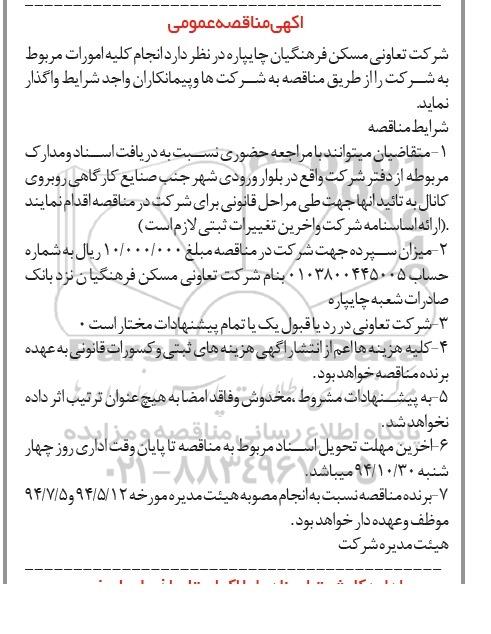 آگهی مناقصه عمومی
شرکت تعاونی مسکن فرهنگیان چایپاره در نظر دارد انجام کلیه امورات مربوط
به شرکت را از طریق مناقصه به شرکت ها و پیمانکاران واجد شرایط واگذار
نماید.
شرایط مناقصه
۱-متقاضیان میتوانند با مراجعه حضوری نسبت به دریافت اسناد و مدارک
مربوطه از دفتر شرکت واقع در بلوار ورودی شهر جنب صنایع کارگاهی روبروی
کانال به تائید انها جهت طی مراحل قانونی برای شرکت در مناقصه اقدام نمایند
.(ارائه اساسنامه شرکت واخرین تغییرات ثبتی لازم است)
۲-میزان سپرده جهت شرکت در مناقصه مبلغ ۱۰/۰۰۰/۰۰۰ ریال به شماره
حساب ۰۱۰۳۸۰۰۴۴۵۰۰۵ بنام شرکت تعاونی مسکن فرهنگیان نزد بانک
صادرات شعبه چایپاره
۳-شرکت تعاونی در رد یا قبول یک یا تمام پیشنهادات مختار است ۰
۴-کلیه هزینه ها اعم از انتشار اگهی هزینه های ثبتی و کسورات قانونی به عهده
برنده مناقصه خواهد بود.
۵-به پیشنهادات مشروط ،مخدوش وفاقد امضا به هیچ عنوان ترتیب اثر داده
نخواهد شد.
۶-اخزین مهلت تحویل اسناد مربوط به مناقصه تا پایان وقت اداری روز چهار
شنبه ۹۴/۱۰/۳۰ میباشد.
۷-برنده مناقصه نسبت به انجام مصوبه هیئت مدیره مورخه ۹۴/۵/۱۲ و ۹۴/۷/۵
موظف وعهده دار خواهد بود.
هیئت مدیره شرکت
پایگاه اطلاع رسانی مناقصه و مزایده